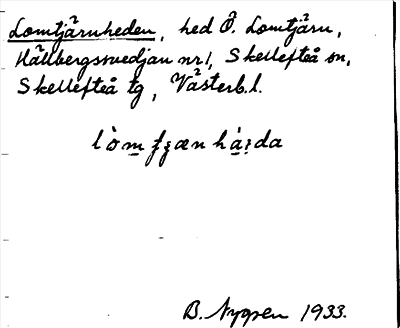 Lomtjärnheden, hed Ö. Lomtjärn,
Hällbergsmedjan nr 1, Skellefteå sn,
Skellefteå tg, Västerb. l.
B. Nygren 1933.